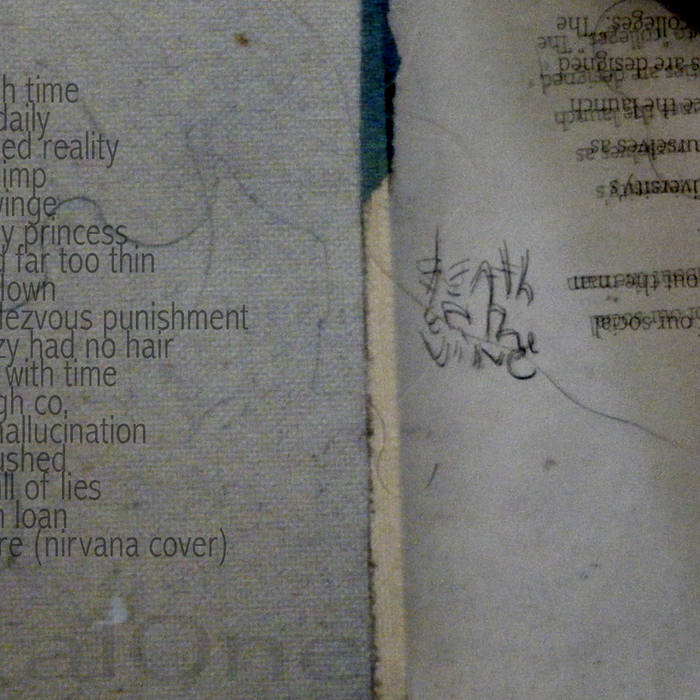 h time
daily
ed reality
imp
winge
y princess
d far too thin
lown
lezvous punishment
zy had no hair
with time
gh co.
hallucination
ushed
ll of lies
n loan
re (nirvana cover)
alone
colleges. The
s are designed
ce the launch
urselves as
iversity's
out the man
our social
DEATH